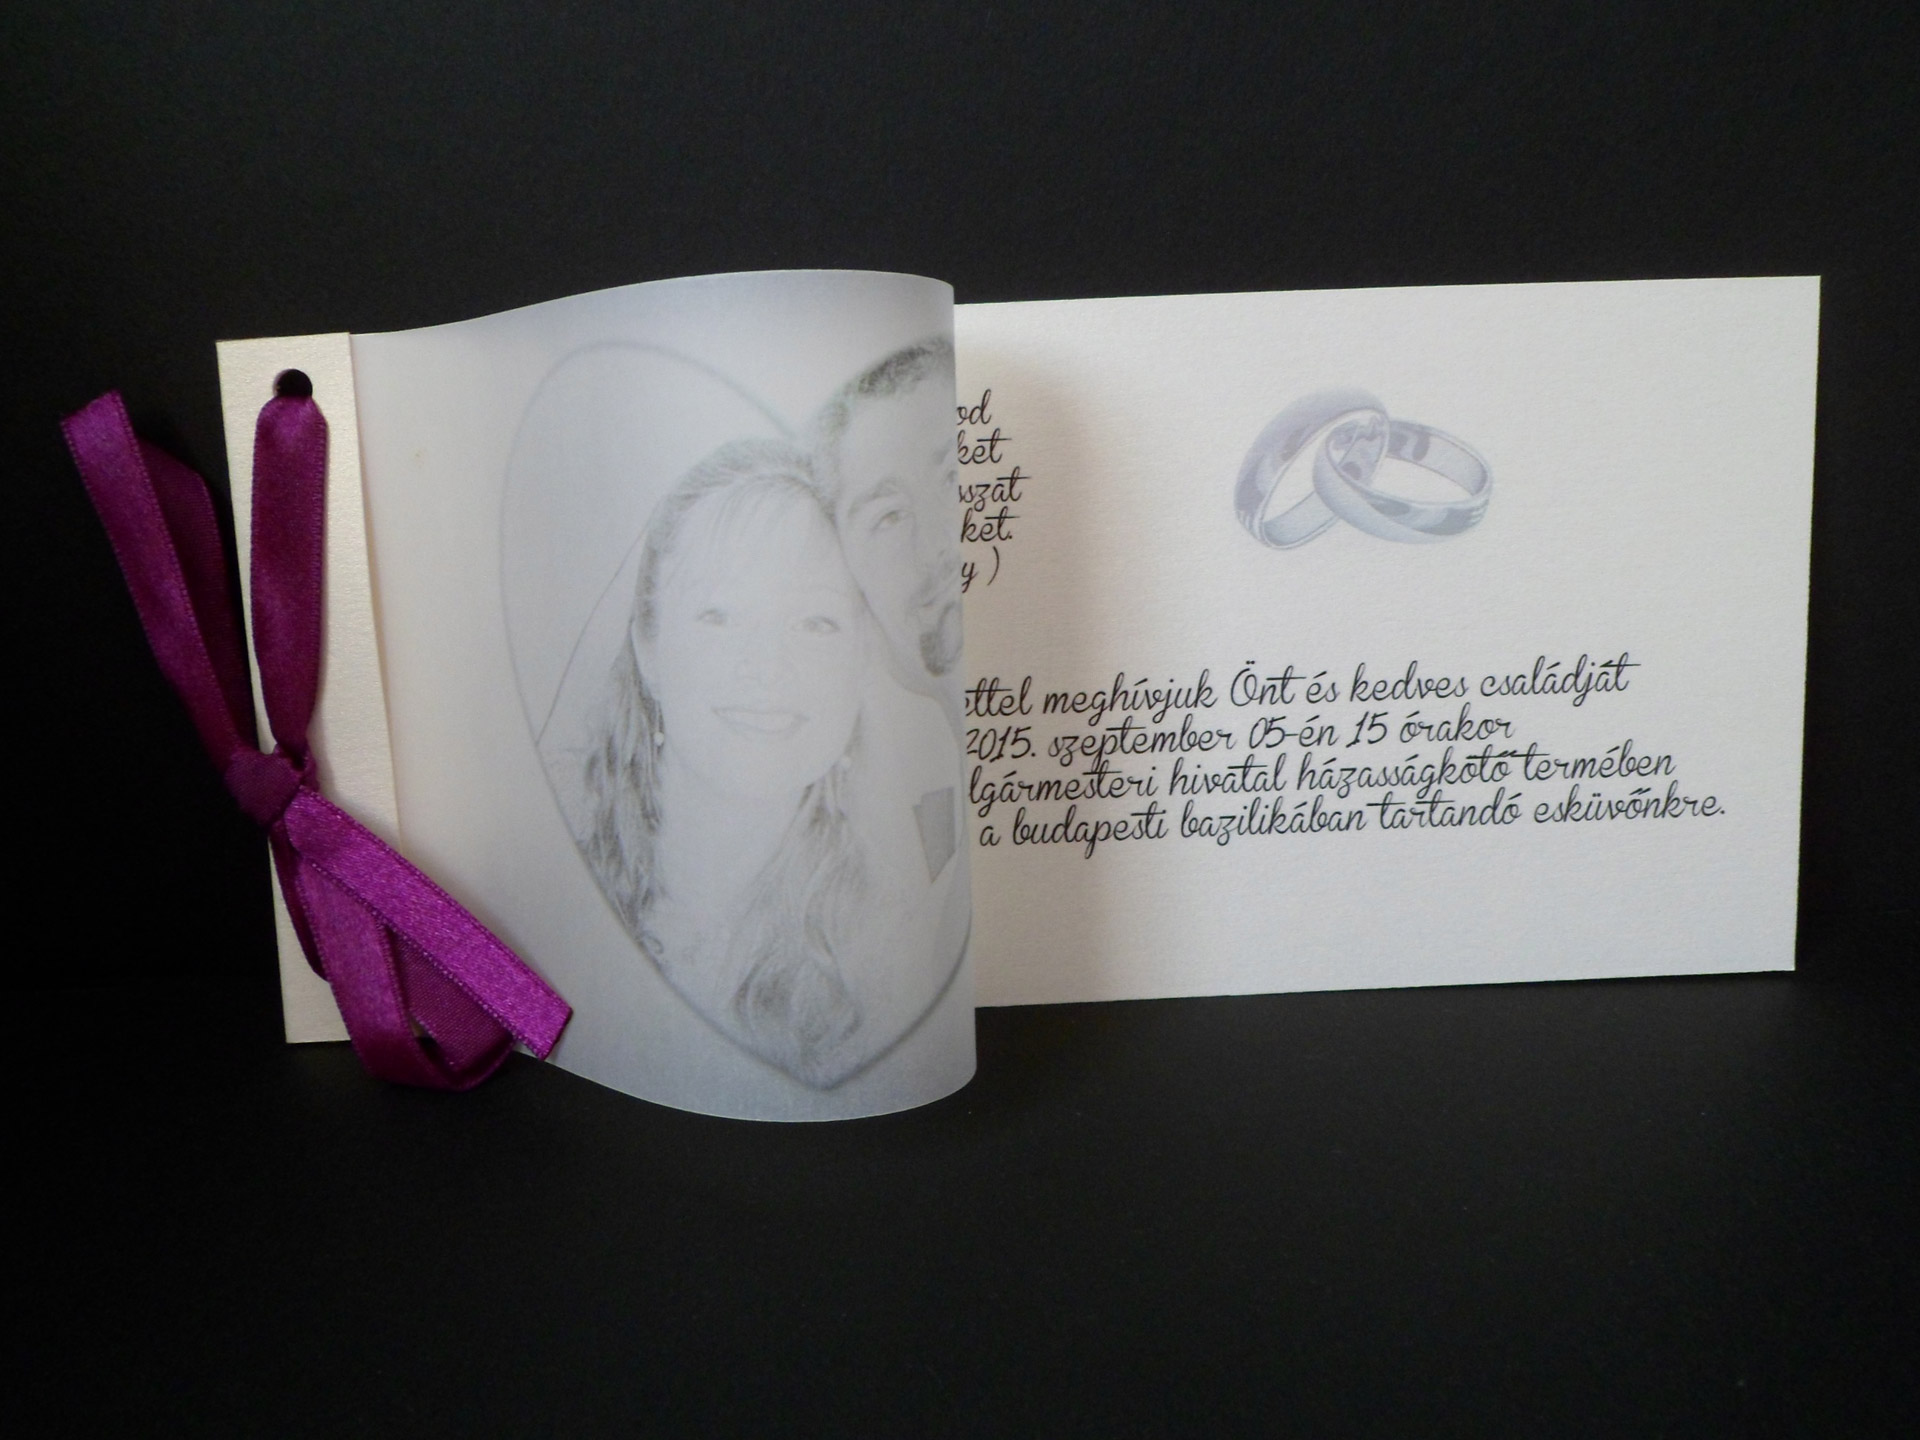 od
ket
sszat
ket.
y )
ettel meghívjuk Önt és kedves családját
2015. szeptember 05-én 15 órakor
lgármesteri hivatal házasságkötő termében
a budapesti bazilikában tartandó esküvőnkre.